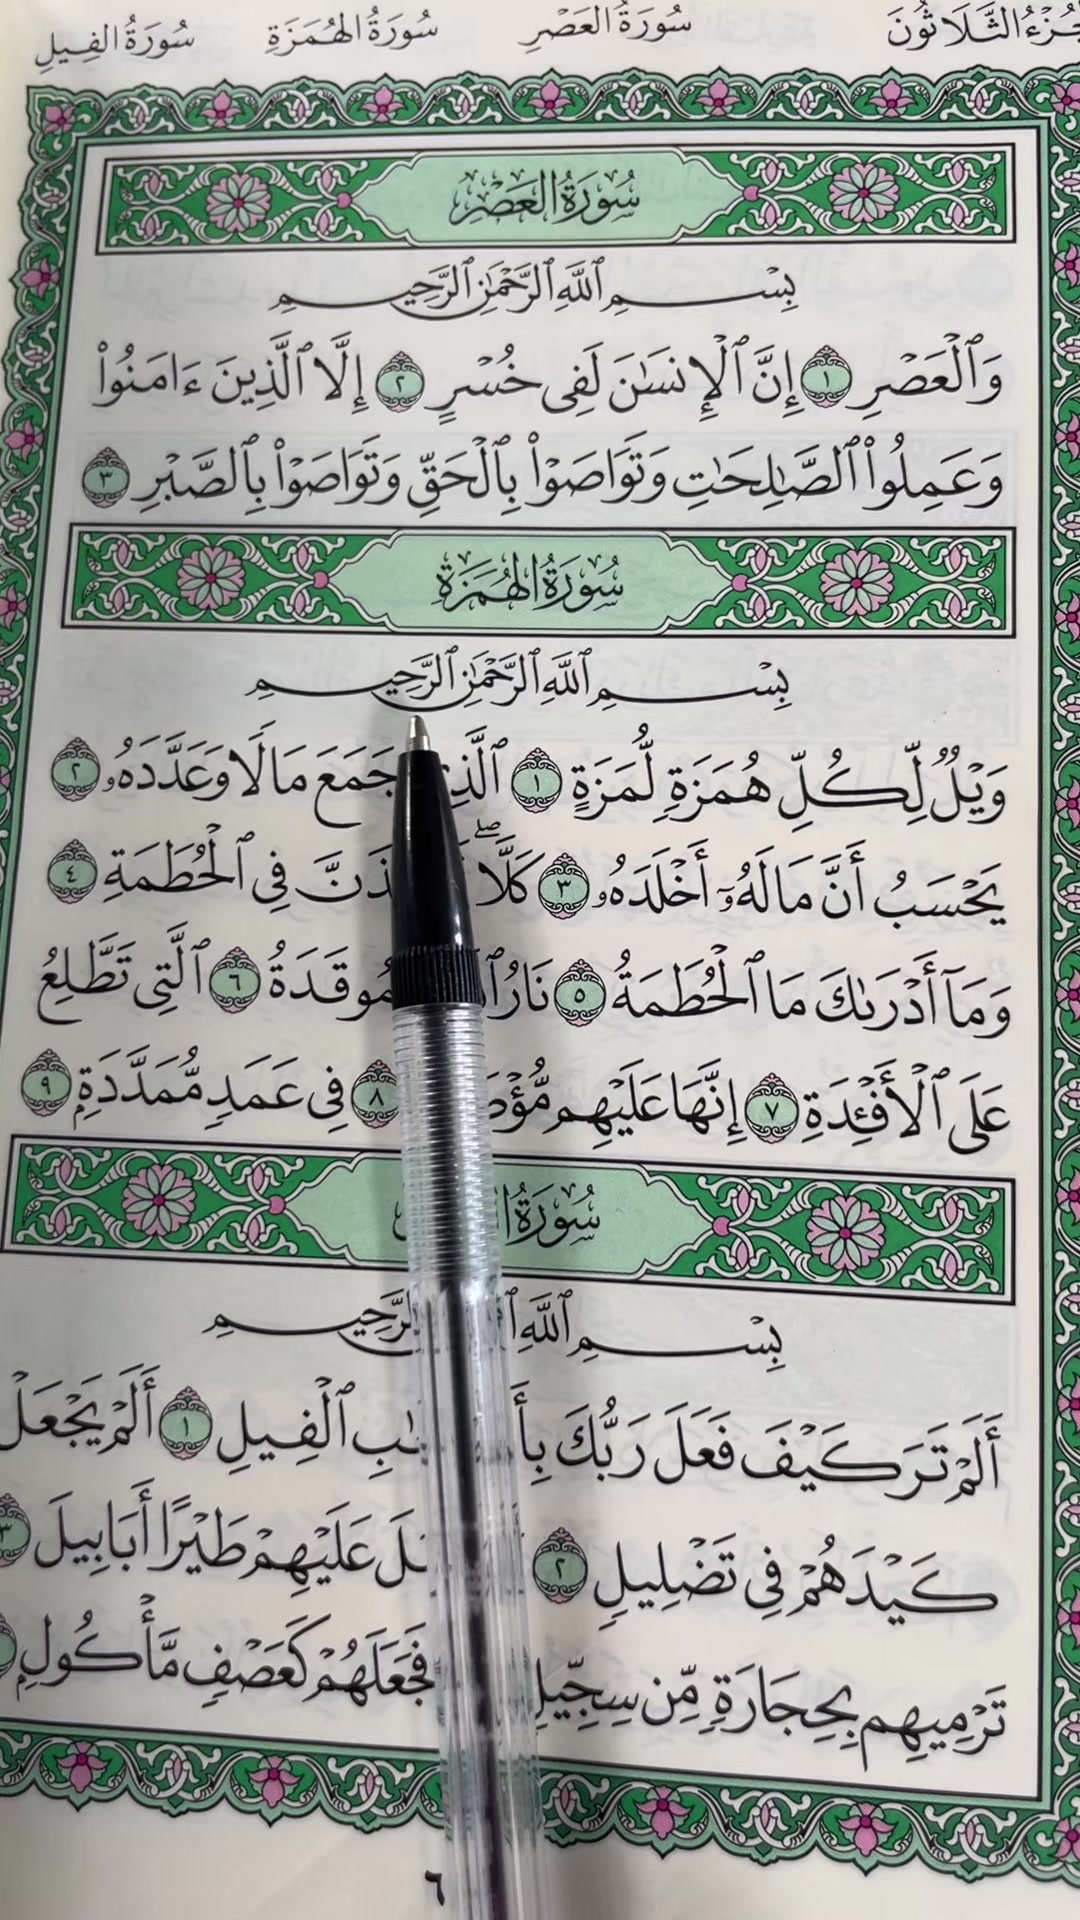 الجُزْءُ الثَّلَاثُونَ سُورَةُ العَصْرِ سُورَةُ الهُمَزَةِ سُورَةُ الفِيلِ
سُورَةُ العَصْرِ
بِسْمِ ٱللَّهِ ٱلرَّحْمَٰنِ ٱلرَّحِيمِ
وَٱلْعَصْرِ ١ إِنَّ ٱلْإِنسَٰنَ لَفِى خُسْرٍ ٢ إِلَّا ٱلَّذِينَ ءَامَنُوا۟
وَعَمِلُوا۟ ٱلصَّٰلِحَٰتِ وَتَوَاصَوْا۟ بِٱلْحَقِّ وَتَوَاصَوْا۟ بِٱلصَّبْرِ ٣
سُورَةُ الهُمَزَةِ
بِسْمِ ٱللَّهِ ٱلرَّحْمَٰنِ ٱلرَّحِيمِ
وَيْلٌ لِّكُلِّ هُمَزَةٍ لُّمَزَةٍ ١ ٱلَّذِى جَمَعَ مَالًا وَعَدَّدَهُۥ ٢
يَحْسَبُ أَنَّ مَالَهُۥٓ أَخْلَدَهُۥ ٣ كَلَّا ۖ فِى ٱلْحُطَمَةِ ٤
وَمَآ أَدْرَىٰكَ مَا ٱلْحُطَمَةُ ٥ نَارُ مُوقَدَةُ ٦ ٱلَّتِى تَطَّلِعُ
عَلَى ٱلْأَفْـِٔدَةِ ٧ إِنَّهَا عَلَيْهِم ٨ فِى عَمَدٍ مُّمَدَّدَةٍۭ ٩
سُورَةُ
بِسْمِ ٱللَّهِ ٱلرَّحِيمِ
أَلَمْ تَرَ كَيْفَ فَعَلَ رَبُّكَ ٱلْفِيلِ ١ أَلَمْ يَجْعَلْ
كَيْدَهُمْ فِى تَضْلِيلٍ ٢ عَلَيْهِمْ طَيْرًا أَبَابِيلَ ٣
تَرْمِيهِم بِحِجَارَةٍ مِّن سِجِّيلٍ فَجَعَلَهُمْ كَعَصْفٍ مَّأْكُولٍۭ